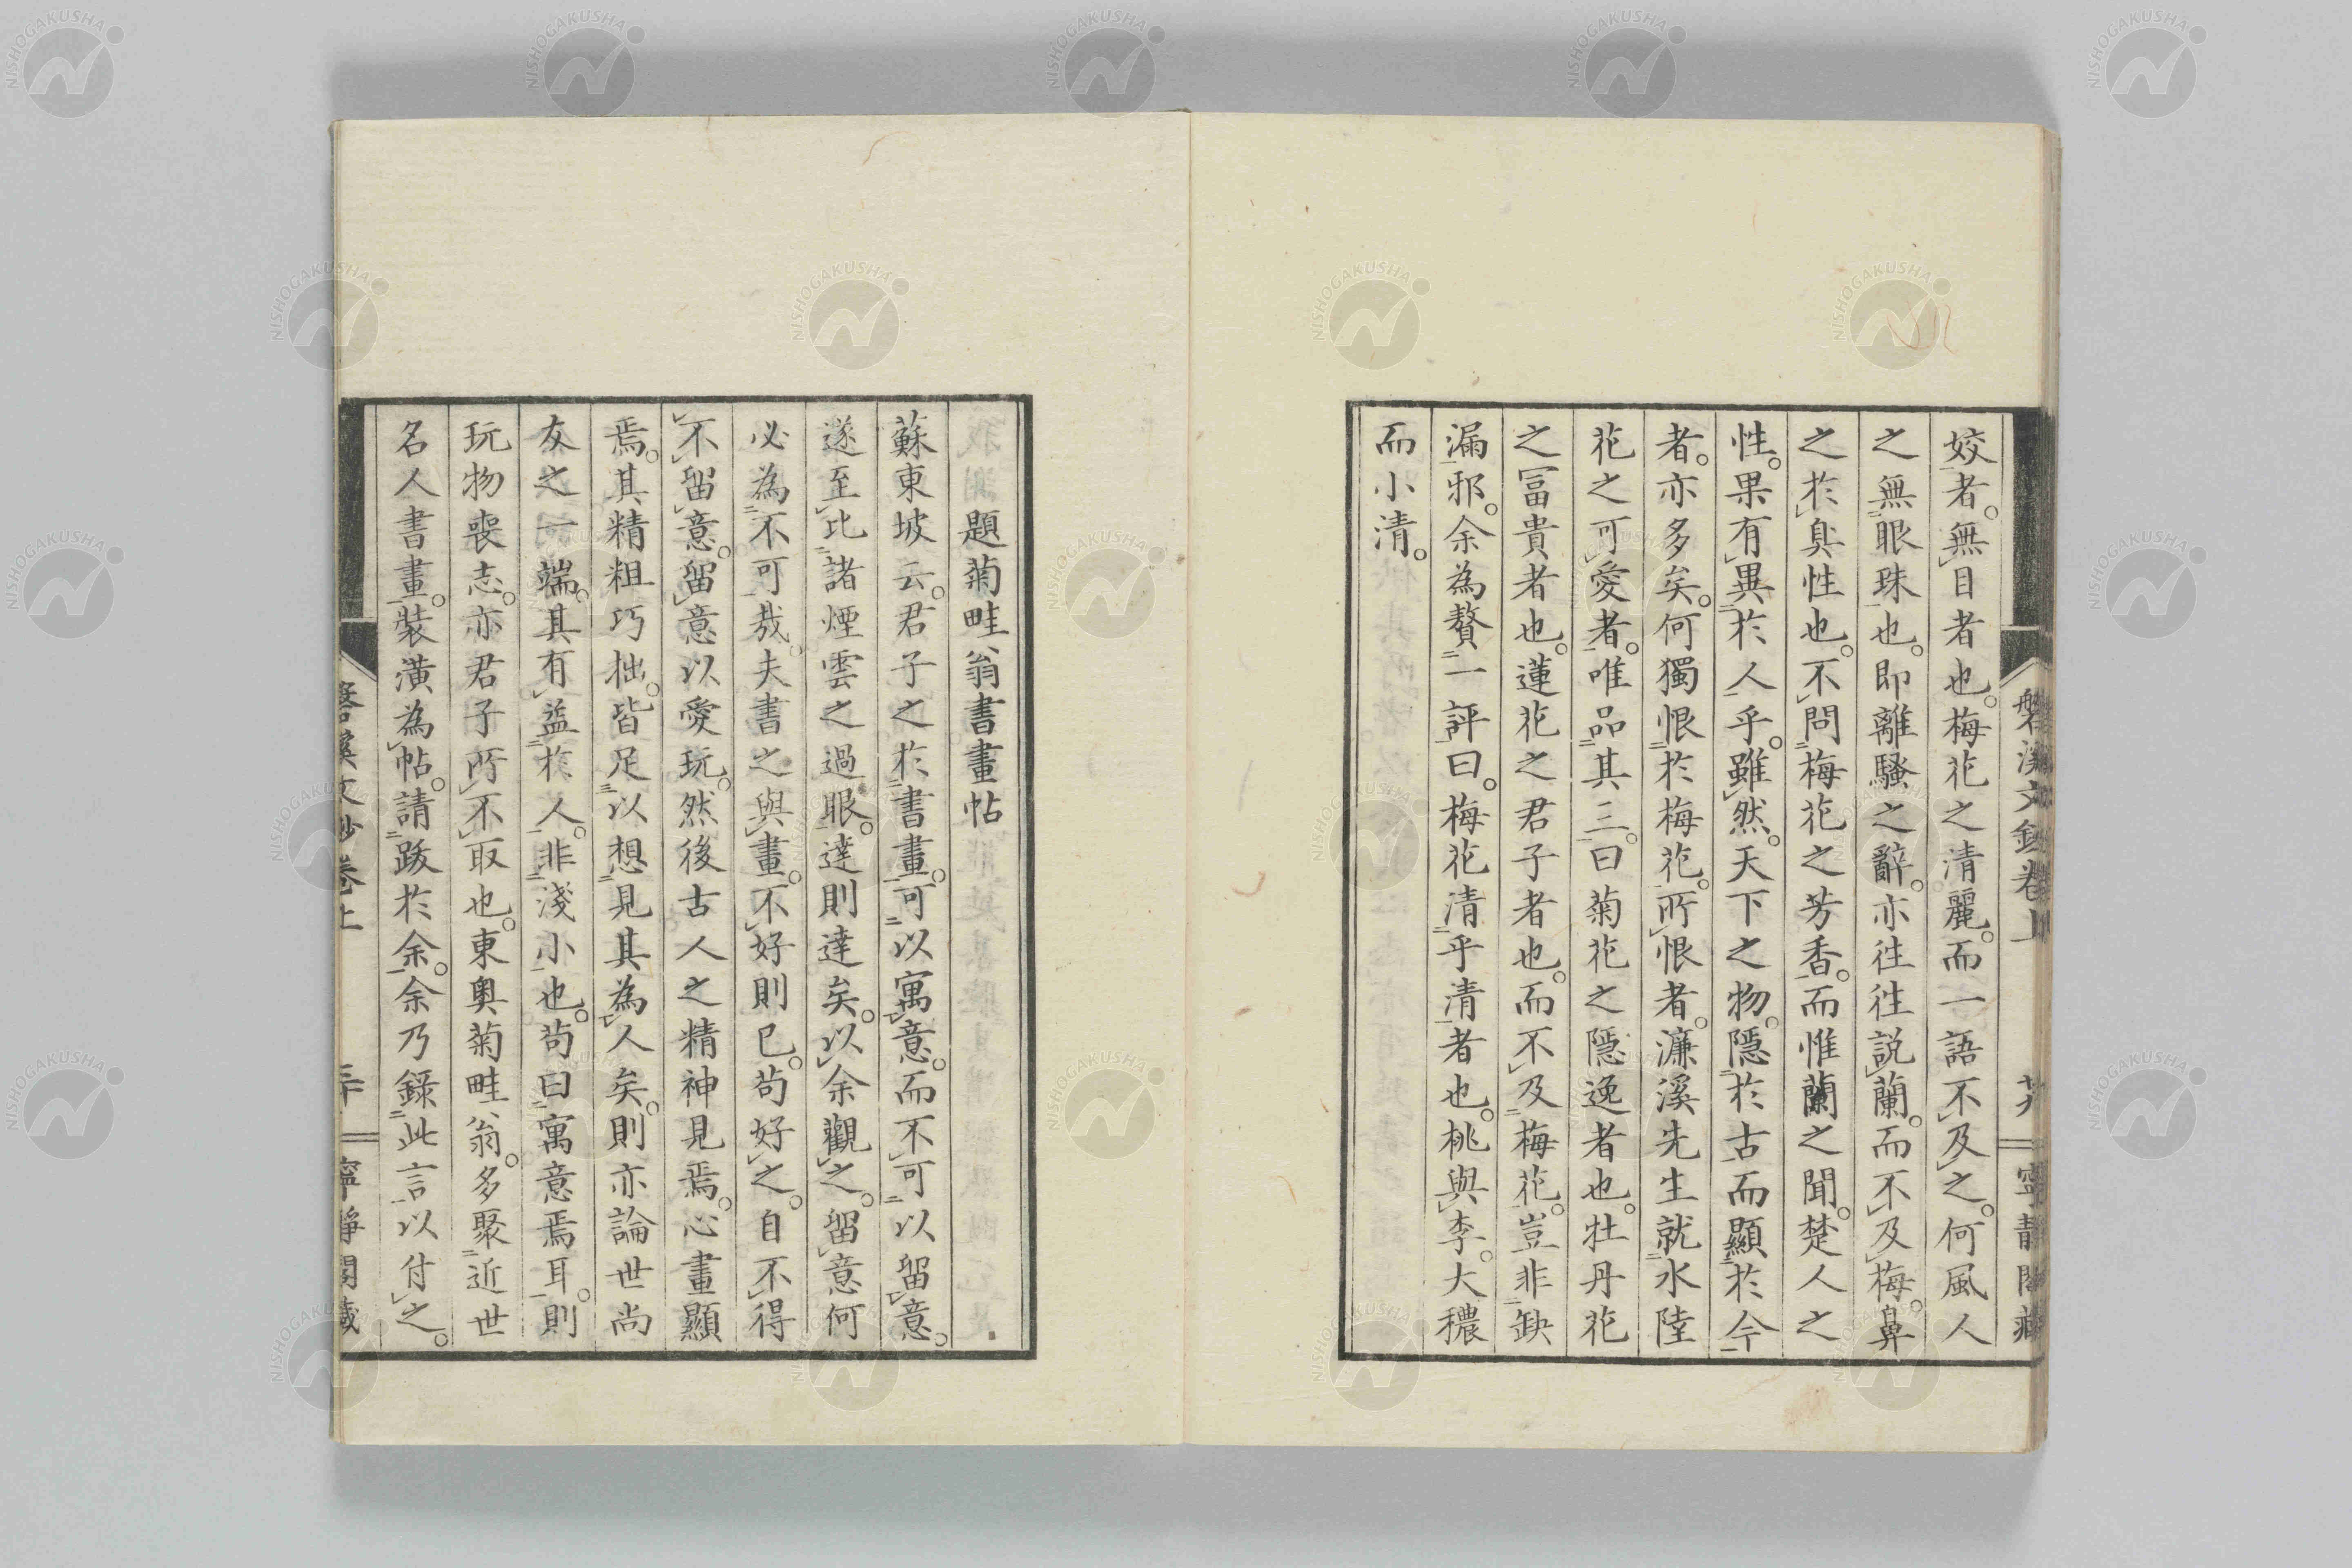 姣者。無目者也。梅花之清麗。而一語不及之。何風人
之無眼珠也。即離騷之辭。亦往往説蘭。而不及梅。鼻
之於臭性也。不問梅花之芳香。而惟蘭之聞。楚人之
性。果有異於人乎。雖然。天下之物。隱於古而顯於今
者。亦多矣。何獨恨於梅花。所恨者。濂溪先生就水陸
花之可愛者。唯品其三。曰菊花之隱逸者也。牡丹花
之冨貴者也。蓮花之君子者也。而不及梅花。豈非缺
漏邪。余為贅一評曰。梅花清乎清者也。桃與李。大穠
而小清。
磐溪文鈔卷上
廿九
寧靜閣藏
題菊畦翁書畫帖
蘇東坡云。君子之於書畫。可以寓意。而不可以留意。
遂至比諸煙雲之過眼。達則達矣。以余觀之。留意何
必為不可哉。夫書之與畫。不好則已。苟好之。自不得
不留意。留意以愛玩。然後古人之精神見焉。心畫顯
焉。其精粗巧拙。皆足以想見其為人矣。則亦論世尚
友之一端。其有益於人。非淺小也。苟曰寓意焉耳。則
玩物喪志。亦君子所不取也。東奧菊畦翁。多聚近世
名人書畫。裝潢為帖。請跋於余。余乃錄此言以付之。
磐溪文鈔卷上
三十
寧靜閣藏
NISHOGAKUSHA